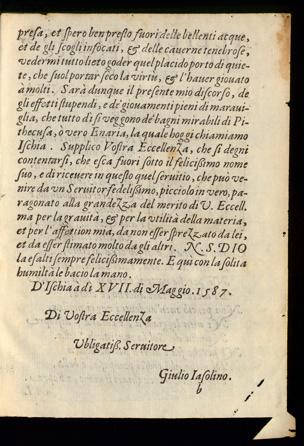 presa, et spero ben presto fuori delle bellenti acque,
et de gli scogli infocati, & delle cauerne tenebrose,
vedermi tutto lieto goder quel placido porto di quie-
te, che suol portar seco la virtù, & l'hauer giouato
à molti. Sarà dunque il presente mio discorso, de
gli effetti stupendi, e de' giouamenti pieni di maraui-
glia, che tutto dì si veggono de' bagni mirabili di Pi-
thecusa, ò vero Enaria, la quale hoggi chiamiamo
Ischia. Supplico Vostra Eccellenza, che si degni
contentarsi, che esca fuori sotto il felicissimo nome
suo, e di riceuere in questo quel seruitio, che può ve-
nire da vn Seruitor fedelissimo, picciolo in vero, pa-
ragonato alla grandezza del merito di V. Eccell.
ma per la grauità, & per la vtilità della materia,
et per l'affettion mia, da non esser sprezzato da lei,
et da esser stimato molto da gli altri. N. S. DIO
la esalti sempre felicissimamente. E qui con la solita
humiltà le bacio la mano.
D'Ischia à dì XVII. di Maggio. 1587.
Di Vostra Eccellenza
Vbligatiss. Seruitore
Giulio Iasolino.
b